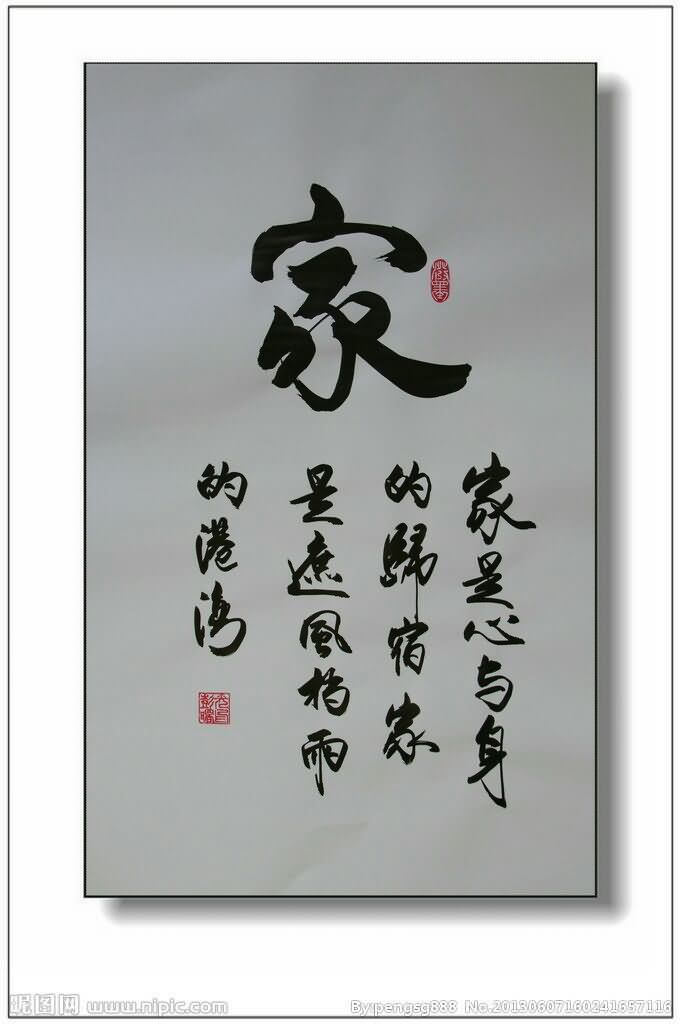 家
家是心与身
的歸宿家
是遮風档雨
的港湾
昵图网 www.nipic.com
By:pengsg888 No.20130607160241657116